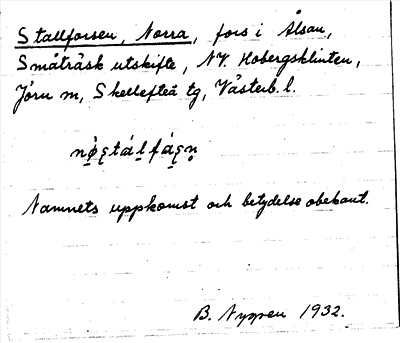 Stallforsen, Norra, fors i Ålsån,
Småträsk utskifte, NV. Hobergsklinten,
Jörn sn, Skellefteå tg, Västerb. l.
Namnets uppkomst och betydelse obekant.
B. Nygren 1932.